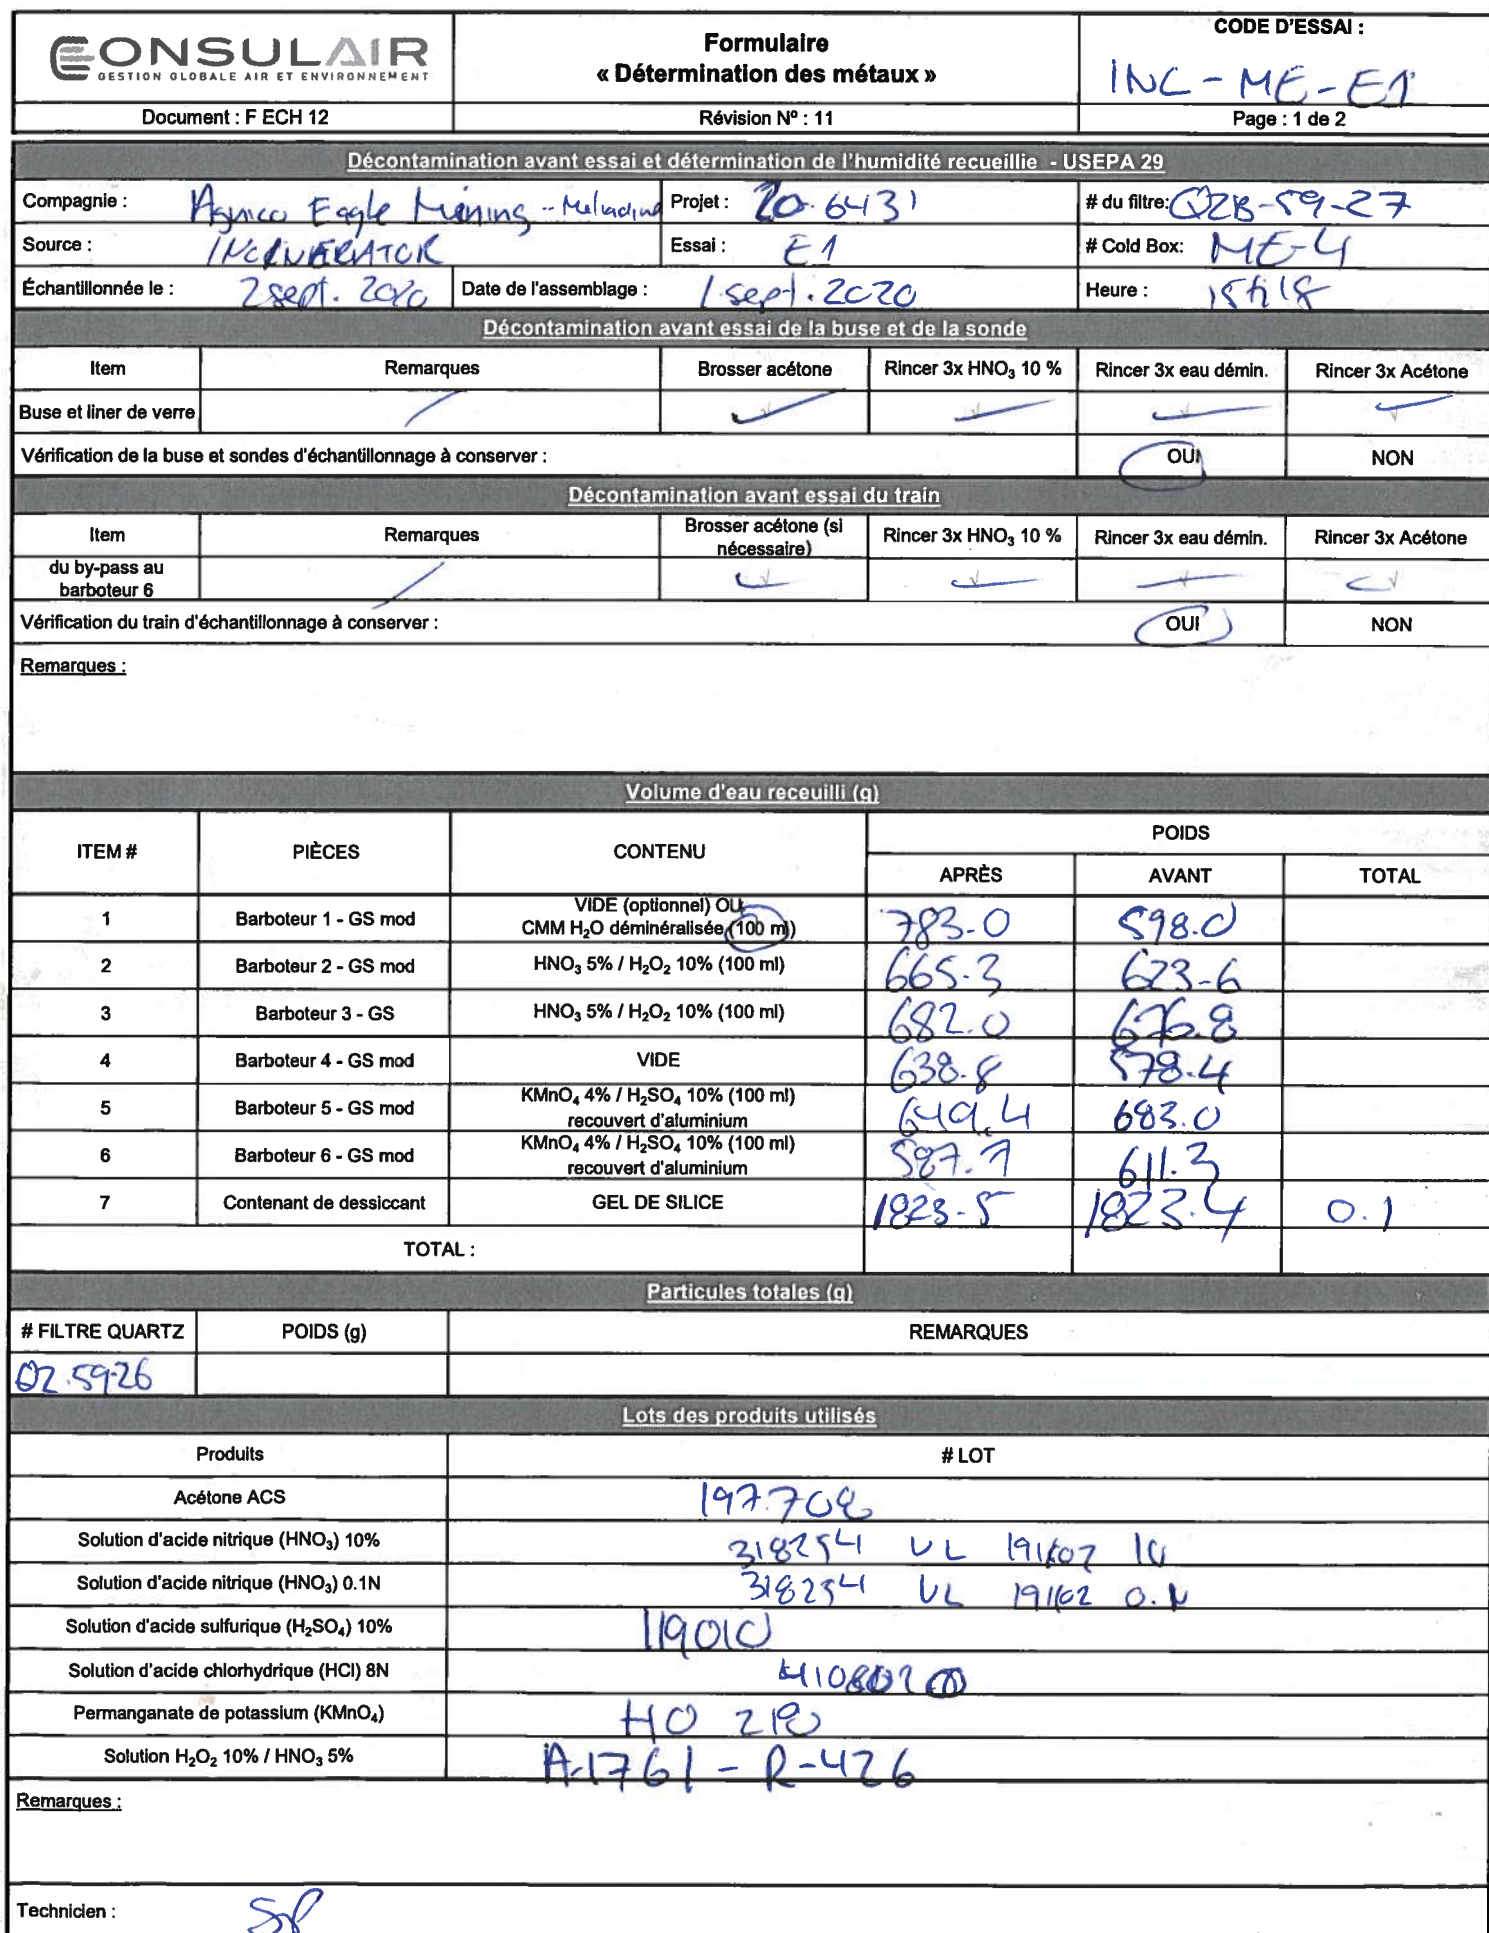 CONSULAIR
GESTION GLOBALE AIR ET ENVIRONNEMENT
Formulaire
« Détermination des métaux »
CODE D'ESSAI :
INC-ME-E1
Document : F ECH 12
Révision Nº : 11
Page : 1 de 2
Décontamination avant essai et détermination de l'humidité recueillie - USEPA 29
Compagnie : Agnico Eagle Mining - Meliadine Projet : 20.6431 # du filtre: QZB-59-27
Source : INCINERATOR Essai : E1 # Cold Box: ME-4
Échantillonnée le : 2 sept. 2020 Date de l'assemblage : 1 sept. 2020 Heure : 15h18
Décontamination avant essai de la buse et de la sonde
Item Remarques Brosser acétone Rincer 3x HNO₃ 10 % Rincer 3x eau démin. Rincer 3x Acétone
Buse et liner de verre
Vérification de la buse et sondes d'échantillonnage à conserver : OUI NON
Décontamination avant essai du train
Item Remarques Brosser acétone (si nécessaire) Rincer 3x HNO₃ 10 % Rincer 3x eau démin. Rincer 3x Acétone
du by-pass au
barboteur 6
Vérification du train d'échantillonnage à conserver : OUI NON
Remarques :
Volume d'eau receuilli (g)
ITEM # PIÈCES CONTENU POIDS
APRÈS AVANT TOTAL
1 Barboteur 1 - GS mod VIDE (optionnel) OU CMM H₂O déminéralisée (100 ml) 783.0 598.0
2 Barboteur 2 - GS mod HNO₃ 5% / H₂O₂ 10% (100 ml) 665.3 623-6
3 Barboteur 3 - GS HNO₃ 5% / H₂O₂ 10% (100 ml) 682.0 676.8
4 Barboteur 4 - GS mod VIDE 638.8 578.4
5 Barboteur 5 - GS mod KMnO₄ 4% / H₂SO₄ 10% (100 ml) recouvert d'aluminium 649.4 683.0
6 Barboteur 6 - GS mod KMnO₄ 4% / H₂SO₄ 10% (100 ml) recouvert d'aluminium 587.7 611.3
7 Contenant de dessiccant GEL DE SILICE 1823-5 1823.4 0.1
TOTAL :
Particules totales (g)
# FILTRE QUARTZ POIDS (g) REMARQUES
QZ.59-26
Lots des produits utilisés
Produits # LOT
Acétone ACS 197708
Solution d'acide nitrique (HNO₃) 10% 318254 UL 191102 10
Solution d'acide nitrique (HNO₃) 0.1N 318254 UL 191102 0.N
Solution d'acide sulfurique (H₂SO₄) 10% 119010
Solution d'acide chlorhydrique (HCl) 8N
Permanganate de potassium (KMnO₄)
Solution H₂O₂ 10% / HNO₃ 5% A-1761-R-426
Remarques :
Technicien : SP